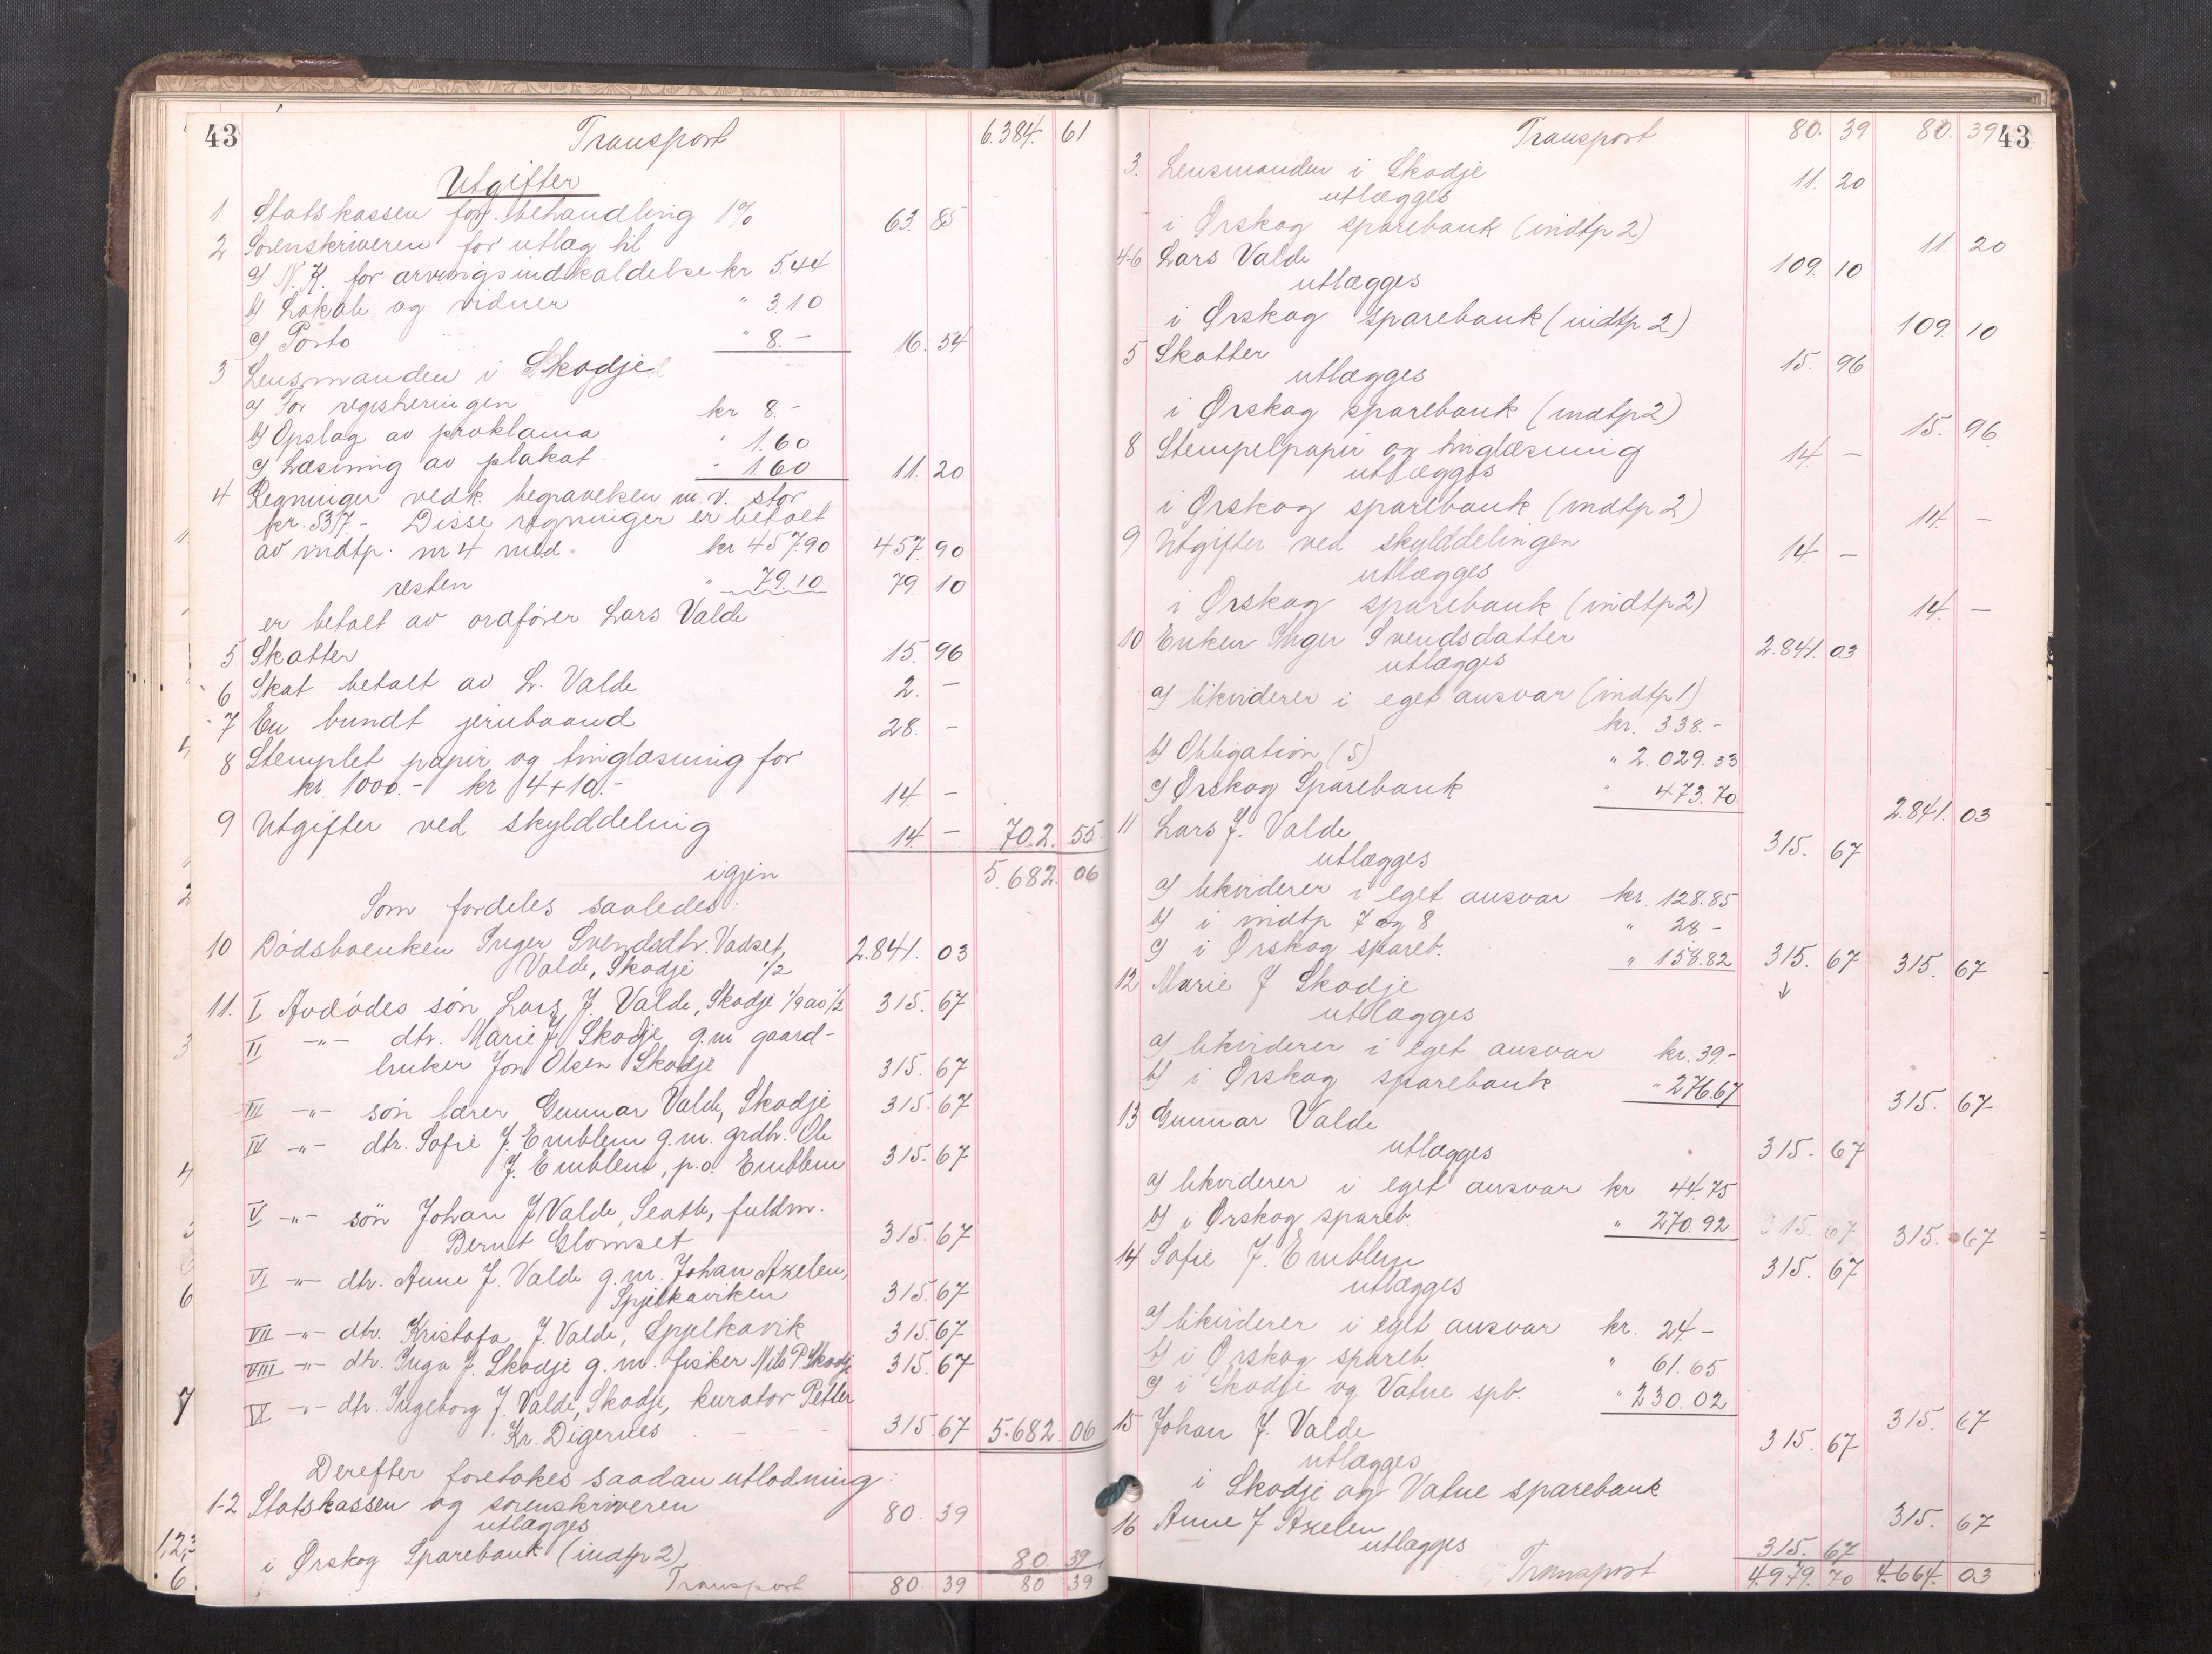 43
Transport 6.384. 61
Utgifter
1 Statskassen for behandling 1% 63. 85
2 Sorenskriveren for utlæg til
a) N. K. for arvingsindkaldelse kr 5.44
b) Lokale og vidner " 3.10
c) Porto " 8.- 16. 54
3 Lensmanden i Skodje
a) For registreringen kr 8.-
b) Opslag av proklama " 1.60
c) Læsning av plakat " 1.60 11. 20
4 Regninger vedk. begravelsen m.v. stor
kr. 537.- Disse regninger er betalt
av indtp. nr 4 med kr 457.90 457. 90
resten " 79.10 79. 10
er betalt av ordfører Lars Valde
5 Skatter 15. 96
6 Skat betalt av L. Valde 2. -
7 En bundt jernbaand 28. -
8 Stemplet papir og tinglæsning for
kr. 1000.- kr 4+10.- 14. -
9 Utgifter ved skylddeling 14. - 702. 55
igjen 5.682. 06
Som fordeles saaledes:
10 Dødsboenken Inger Svendsdtr. Vadset,
Valde, Skodje 1/2 2.841. 03
11. I Avdødes søn Lars J. Valde, Skodje 1/9 av 1/2 315. 67
II -"- dtr. Marie J. Skodje g.m gaard-
bruker Jon Olsen Skodje 315. 67
III -"- søn lærer Gunnar Valde, Skodje 315. 67
IV -"- dtr. Sofie J. Emblem g.m. grdbr. Ole
J. Emblem, p.a. Emblem 315. 67
V -"- søn Johan J. Valde, Seatle, fuldm.
Bernt Glomset 315. 67
VI -"- dtr. Anne J. Valde g.m. Johan Axelen,
Spjelkaviken 315. 67
VII -"- dtr. Kristofa J. Valde, Spjelkavik 315. 67
VIII -"- dtr. Inga J. Skodje g.m. fisker Nils P. Skodje 315. 67
IX -"- dtr. Ingeborg J. Valde, Skodje, kurator Petter
Kr. Digernes 315. 67 5.682. 06
Derefter foretakes saadan utlodning:
1-2 Statskassen og sorenskriveren 80. 39
utlægges
i Ørskog Sparebank (indtp 2) 80. 39
Transport 80. 39 80 39
43
Transport 80. 39 80. 39
3. Lensmanden i Skodje 11. 20
utlægges
i Ørskog sparebank (indtp 2) 11. 20
4-6 Lars Valde 109. 10
utlægges
i Ørskog sparebank (indtp 2) 109. 10
5 Skatter 15. 96
utlægges
i Ørskog sparebank (indtp 2) 15. 96
8 Stempelpapir og tinglæsning 14. -
utlægges
i Ørskog sparebank (indtp 2) 14. -
9 Utgifter ved skylddelingen 14. -
utlægges
i Ørskog sparebank (indtp 2) 14. -
10 Enken Inger Svendsdatter 2.841. 03
utlægges
a) likviderer i eget ansvar (indtp 1)
kr. 338.-
b) Obligation (5) " 2.029.33
c) Ørskog Sparebank " 473.70 2.841. 03
11 Lars J. Valde 315. 67
utlægges
a) likviderer i eget ansvar kr. 128.85
b) i indtp 7 og 8 " 28 -
c) i Ørskog spareb. " 158.82 315. 67
12 Marie J Skodje 315. 67
utlægges
a) likviderer i eget ansvar kr. 39.-
b) i Ørskog sparebank " 276.67 315. 67
13 Gunnar Valde 315. 67
utlægges
a) likviderer i eget ansvar kr 44.75
b) i Ørskog spareb. " 270.92 315. 67 315. 67
14 Sofie J. Emblem 315. 67
utlægges
a) likviderer i eget ansvar kr. 24.-
b) i Ørskog spareb. " 61.65
c) i Skodje og Vatne spb. " 230.02 315. 67
15 Johan J. Valde 315. 67
utlægges
i Skodje og Vatne sparebank 315. 67
16 Anne J Axelen 315. 67
utlægges
Transport 4.979. 70 4.664. 03